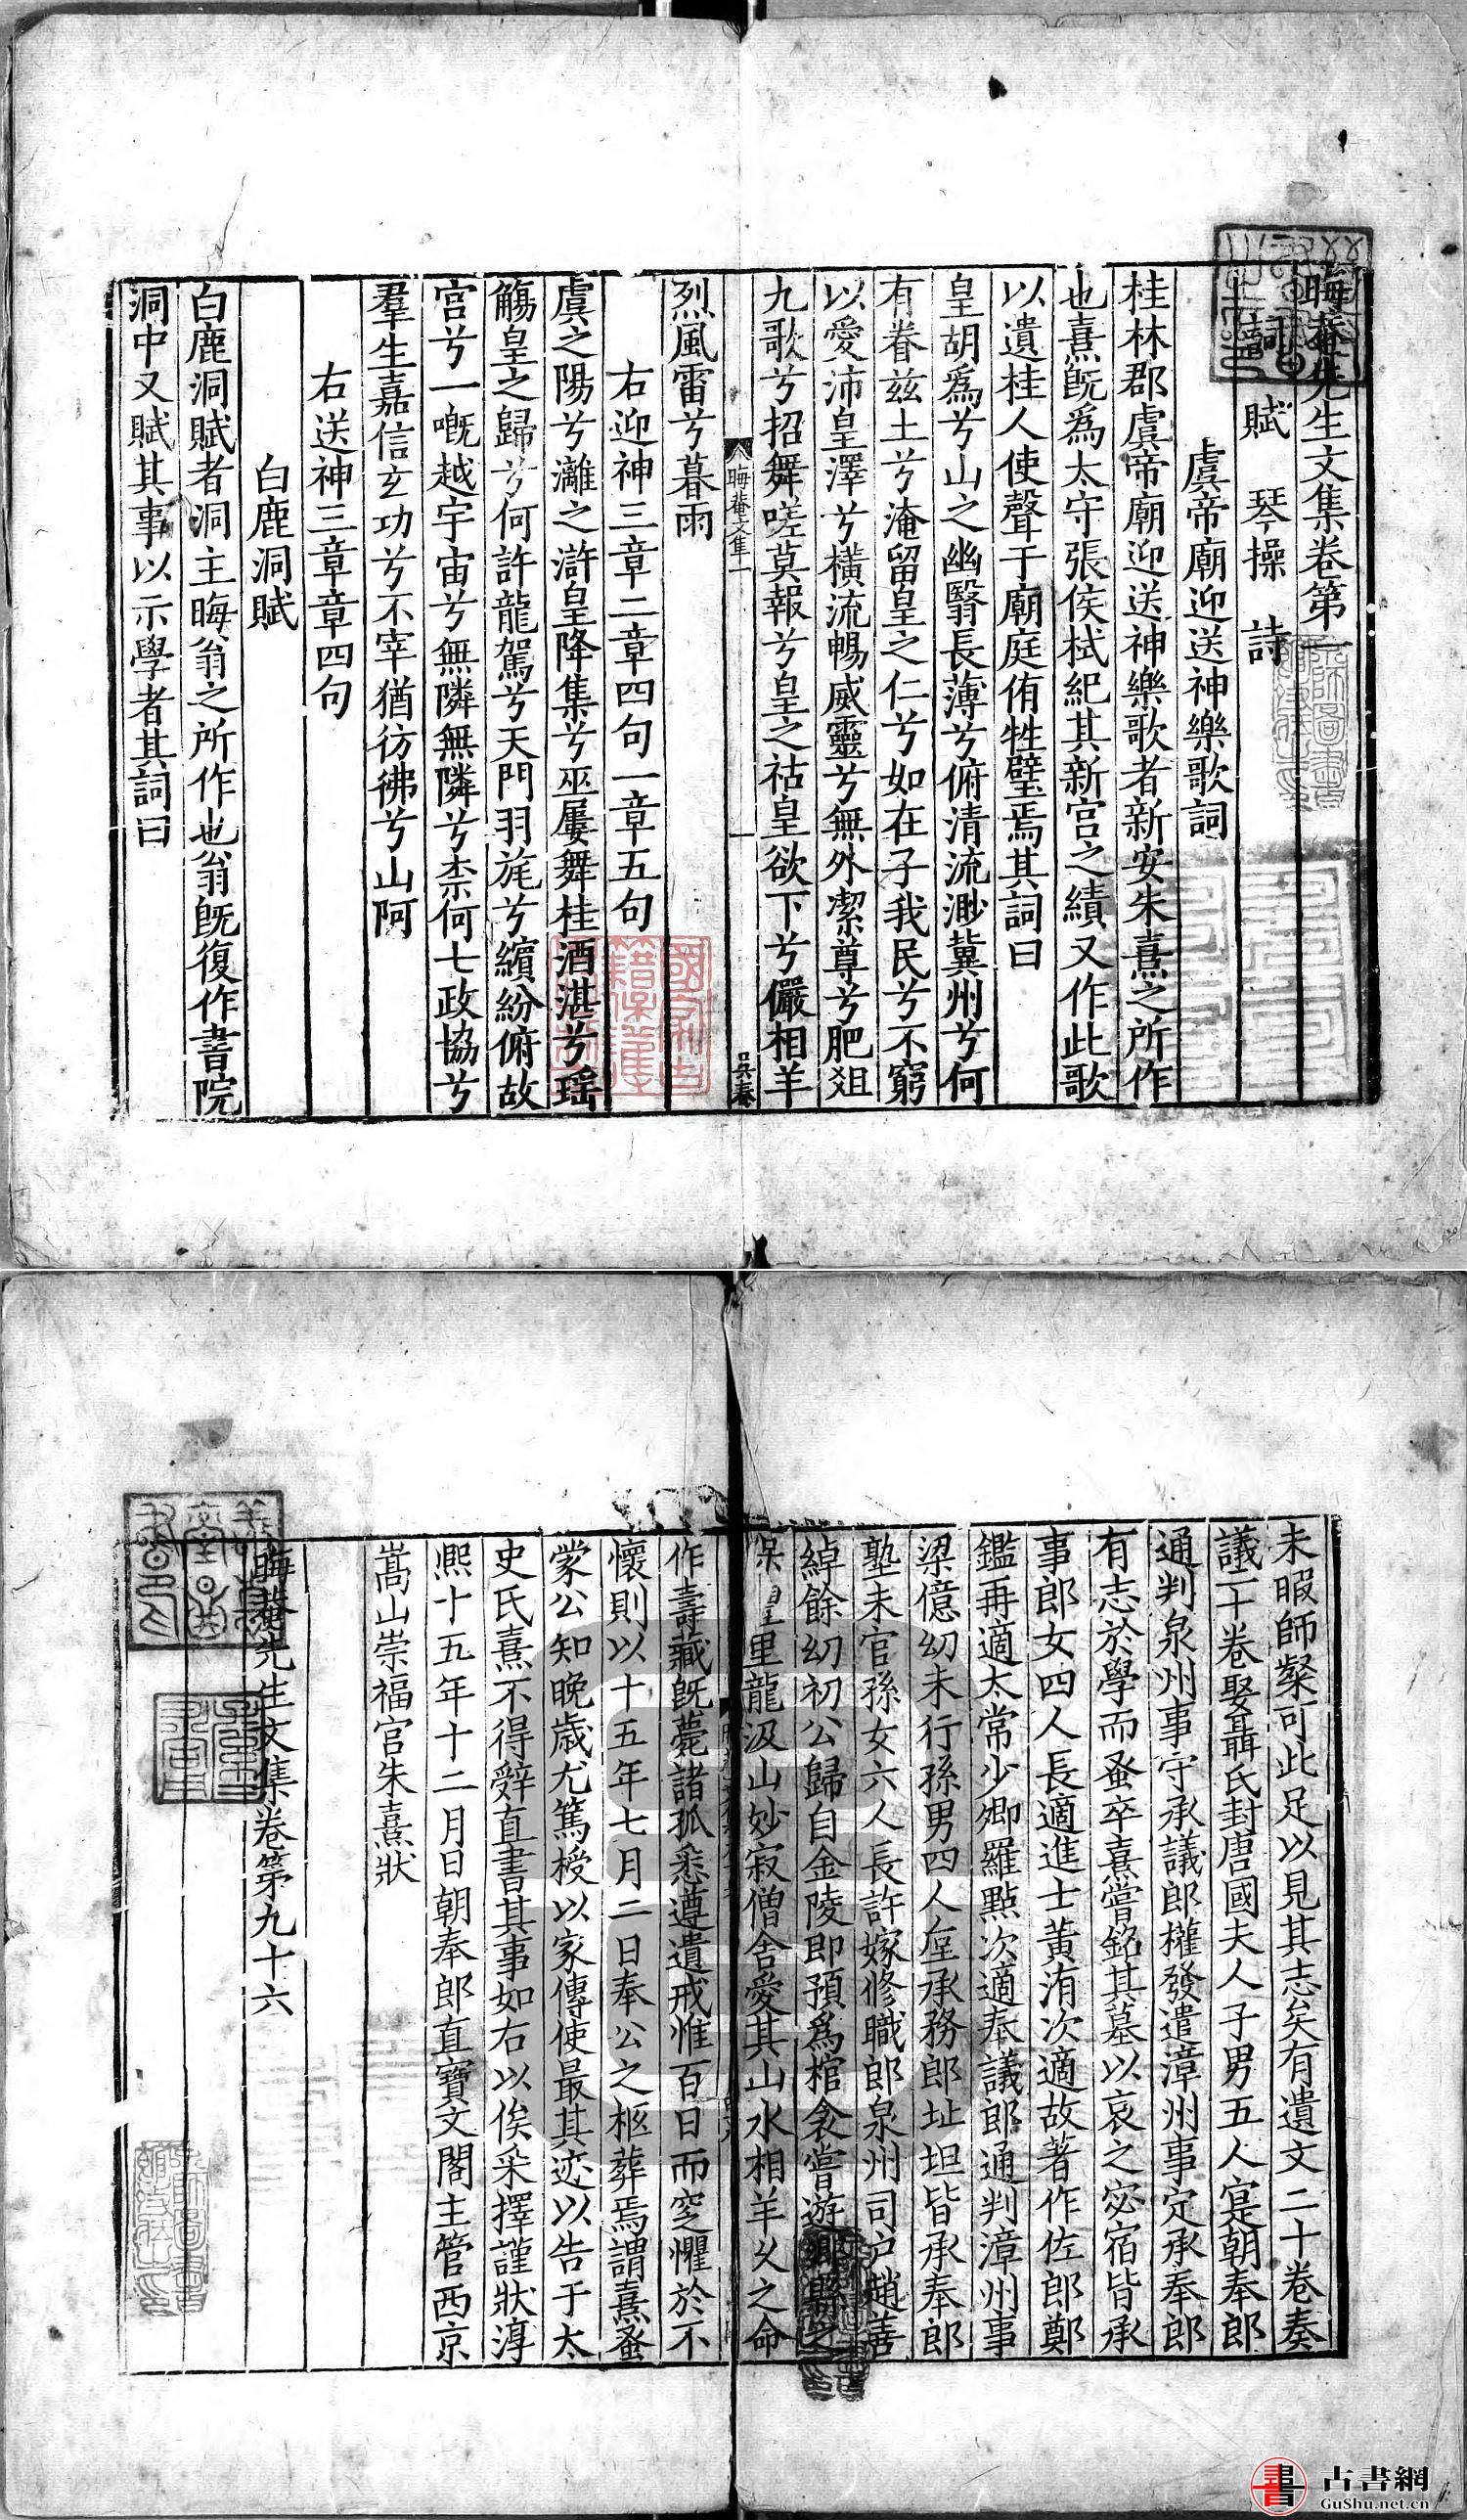 晦菴先生文集卷第一
詞 賦 琴操 詩
虞帝廟迎送神樂歌詞
桂林郡虞帝廟迎送神樂歌者新安朱熹之所作
也熹旣爲太守張侯栻紀其新宫之績又作此歌
以遺桂人使聲于廟庭侑牲璧焉其詞曰
皇胡爲兮山之幽翳長薄兮俯清流渺冀州兮何
有眷兹土兮淹留皇之仁兮如在子我民兮不窮
以愛沛皇澤兮橫流暢威靈兮無外潔尊兮肥俎
九歌兮招舞嗟莫報兮皇之祜皇欲下兮儼相羊
晦菴文集一
一
吴春
烈風雷兮暮雨
右迎神三章二章四句一章五句
虞之陽兮灕之滸皇降集兮巫屢舞桂酒湛兮瑶
觴皇之歸兮何許龍駕兮天門羽旄兮繽紛俯故
宫兮一嘅越宇宙兮無隣無隣兮柰何七政協兮
羣生嘉信玄功兮不宰猶彷彿兮山阿
右送神三章章四句
白鹿洞賦
白鹿洞賦者洞主晦翁之所作也翁旣復作書院
洞中又賦其事以示學者其詞曰
未暇師粲可此足以見其志矣有遺文二十卷奏
議二十卷娶聶氏封唐國夫人子男五人寔朝奉郎
通判泉州事守承議郎權發遣漳州事定承奉郎
有志於學而蚤卒熹嘗銘其墓以哀之宓宿皆承
事郎女四人長適進士黃洧次適故著作佐郎鄭
鑑再適太常少卿羅點次適奉議郎通判漳州事
梁億幼未行孫男四人垕承務郎址坦皆承奉郎
塾未官孫女六人長許嫁修職郎泉州司户趙善
綽餘幼初公歸自金陵即預爲棺衾嘗遊鄉縣之
保 里龍汲山妙寂僧舍愛其山水相羊久之命
作壽藏旣薨諸孤悉遵遺戒惟百日而窆懼於不
懷則以十五年七月二日奉公之柩葬焉謂熹蚤
蒙公知晚歲尤篤授以家傳使最其迹以告于太
史氏熹不得辭直書其事如右以俟采擇謹狀淳
熙十五年十二月日朝奉郎直寶文閣主管西京
嵩山崇福宫朱熹狀
晦菴先生文集卷第九十六
古書網
GuShu.net.cn